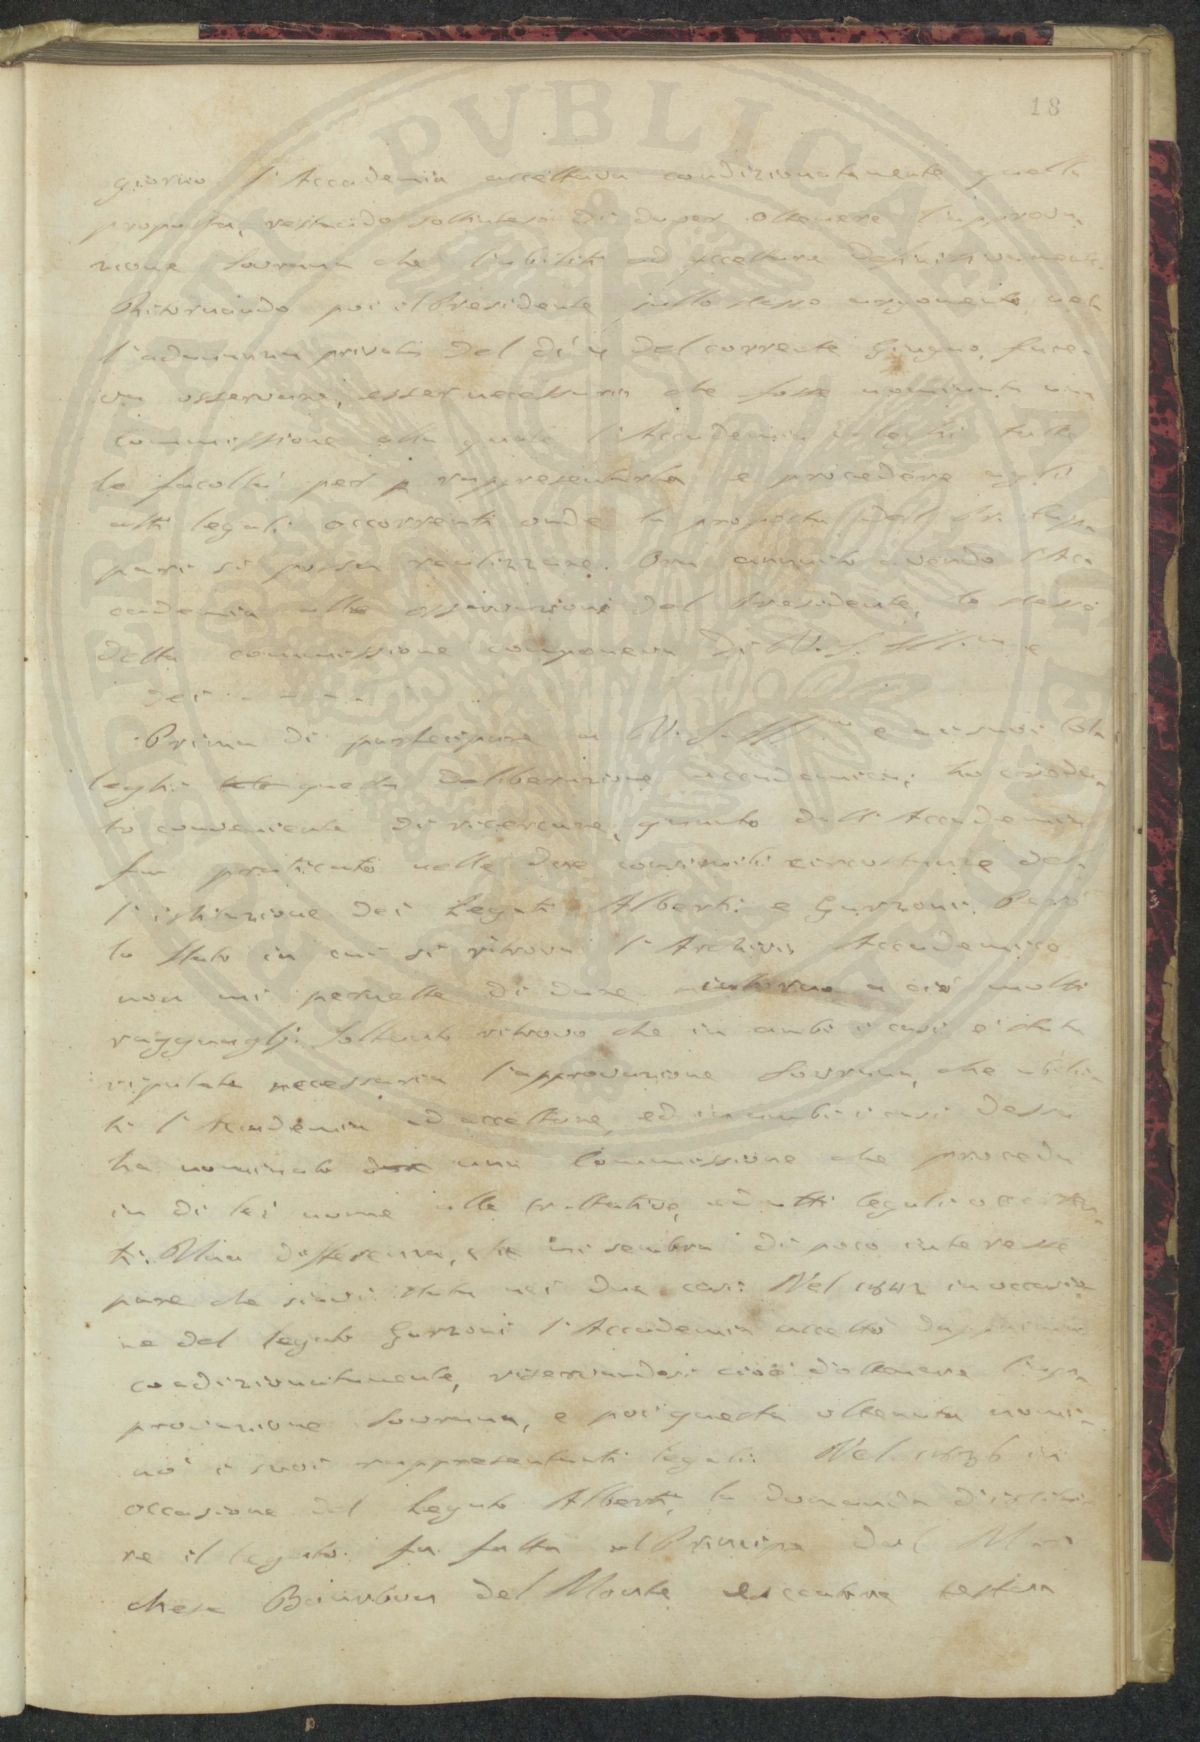 18
giorno l'Accademia accettava condizionatamente quella
proposta, restando sottinteso di dover ottenere l'approva
zione Sovrana che l'abiliti ad accettare definitivamente.
Ritornando poi il Presidente sullo stesso argomento, nel
l'adunanza privata del dì 4 del corrente Giugno, face
va osservare, esser necessario che fosse nominata una
commissione alla quale l'Accademia tutte
le facoltà per rappresentarla e procedere agli
atti legali occorrenti onde la proposta del Sr.
pari si possa realizzare. Ora annuito avendo l'Ac
cademia alle osservazioni del Presidente, lo stesso
della commissione componeva di V. S. Ill.ma e
dei - - - - -
Prima di partecipare a V. S. Ill.ma e ai suoi Col
leghi questa deliberazione accademica, ho credu
to conveniente di ricercare, quanto dall'Accademia
fu praticato nelle due consimili circostanze del
l'istituzione dei Legati Alberti e Garzoni. Però
lo stato in cui si ritrova l'Archivio Accademico
non mi permette di dare intorno a ciò molti
ragguagli. Soltanto ritrovo che in ambi i casi è stata
reputata necessaria l'approvazione Sovrana, che abili
ti l'Accademia ad accettare, ed in ambi i casi dessa
ha nominato una Commissione che proceda
in di lei nome alle trattative, ed atti legali occorren
ti. Una differenza, che mi sembra di poco interesse
pare che siavi stata nei due casi. Nel 1842 in occasio
ne del legato Garzoni l'Accademia accettò dapprima
condizionatamente, riservandosi cioè d'ottenere l'ap
provazione Sovrana, e poi questa ottenuta nomi
nò i suoi rappresentanti legali. Nel 1836 in
occasione del Legato Alberti, la domanda d'istitui
re il legato fu fatta al Principe dal Mar
chese Bourbon del Monte esecutore testam